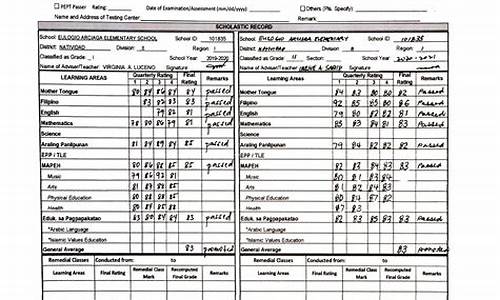 PEPT Passer Rating: Date of Examination/Assessment (mm/dd/yyyy): Others (Pls. Specify)
Name and Address of Testing Center: Remark:
SCHOLASTIC RECORD
School: EULOGIO ARCIAGA ELEMENTARY SCHOOL School ID 101835
District: NATIVIDAD Division: Region: I
Classified as Grade: I Section: School Year: 2019-2020
Name of Adviser/Teacher: VIRGINIA A. LUCENO Signature
LEARNING AREAS Quarterly Rating Final Rating Remarks
1 2 3 4
Mother Tongue 80 84 86 84 84 passed
Filipino 83 82 83 83 passed
English 79 82 81 passed
Mathematics 78 80 86 79 81 passed
Science
Araling Panlipunan 81 84 89 84 85 passed
EPP / TLE
MAPEH 80 86 88 85 85 passed
Music 79 86 92 81
Arts 81 87 88 85
Physical Education 81 88 85
Health 80 84 85
Eduk. sa Pagpapakatao 83 80 84 84 83 passed
*Arabic Language
*Islamic Values Education
General Average 83 promoted
Remedial Classes Conducted from: to
Learning Areas Final Rating Remedial Class Mark Recomputed Final Grade Remarks
School: EULOGIO ARCIAGA ELEMENTARY School ID: 101835
District: NATIVIDAD Division: Region: I
Classified as Grade: II Section: School Year: 2020-2021
Name of Adviser/Teacher: Signature:
LEARNING AREAS Quarterly Rating Final Rating Remarks
1 2 3 4
Mother Tongue 84 85 80 82 Passed
Filipino 92 85 85 80 86 Passed
English 79 80 82 82 81 Passed
Mathematics 85 83 84 81 83 Passed
Science
Araling Panlipunan 79 84 82 82 82 Passed
EPP / TLE
MAPEH 82 83 84 83 83 Passed
Music 80 81 83 84
Arts 81 82 84 83
Physical Education 80 84 87 82
Health 87 83
Eduk. sa Pagpapakatao 82 83 85 82 83 Passed
*Arabic Language
*Islamic Values Education
General Average 83 promoted
Remedial Classes Conducted from to
Learning Areas Final Rating Remedial Class Mark Recomputed Final Grade Remarks